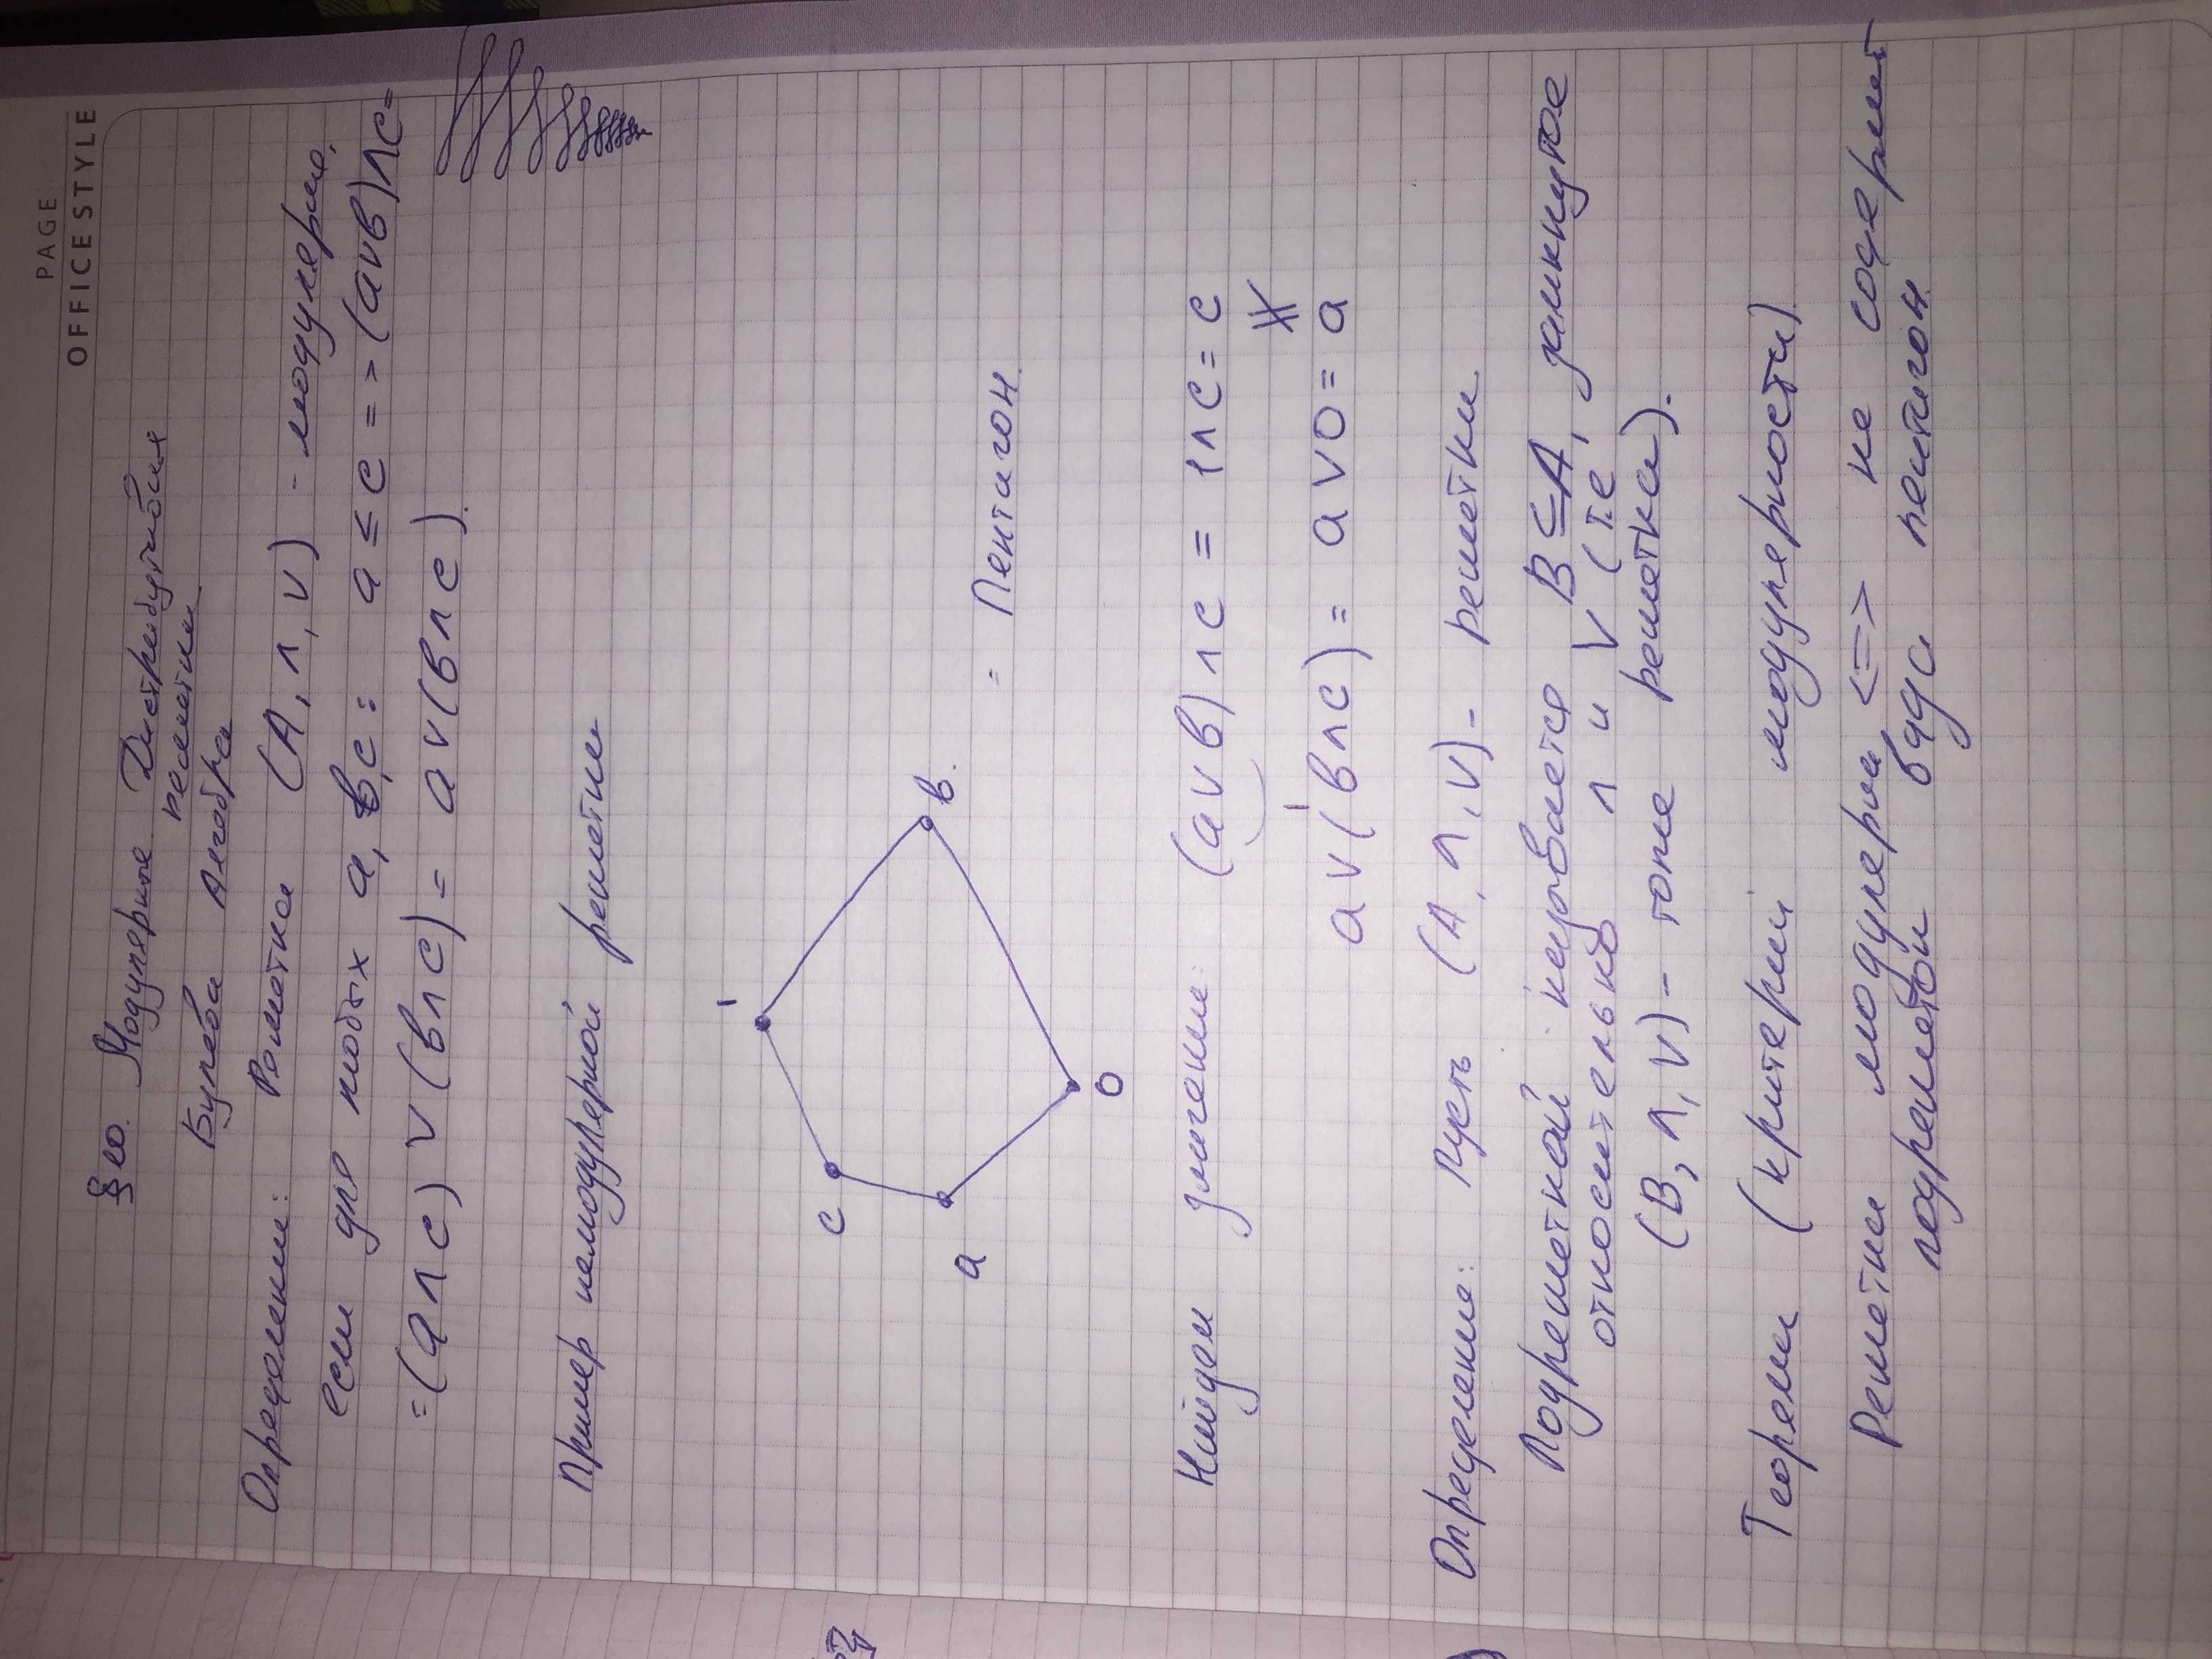 PAGE
OFFICE STYLE
§10. Модулярные. Дистрибутивные
решетки
Булева Алгебра
Определение: Решетка (A, ∧, ∨) - модулярна,
если для любых a, b, c: a ≤ c => (a∨b)∧c=
=(a∧c)∨(b∧c)= a∨(b∧c).
Пример немодулярной решетки
1
c
b.
a
= Пентагон.
0
Найдем значение: (a∨b)∧c = 1∧c = c
1
a∨(b∧c) = a∨0 = a
Определение: Пусть (A, ∧, ∨) - решетка
Подрешеткой называется B⊆A, замкнутое
относительно ∧ и ∨ (т.е
(B, ∧, ∨) - тоже решетка).
Теорема (критерий модулярности)
Решетка модулярна <=> не содержит
подрешеток вида пентагон.